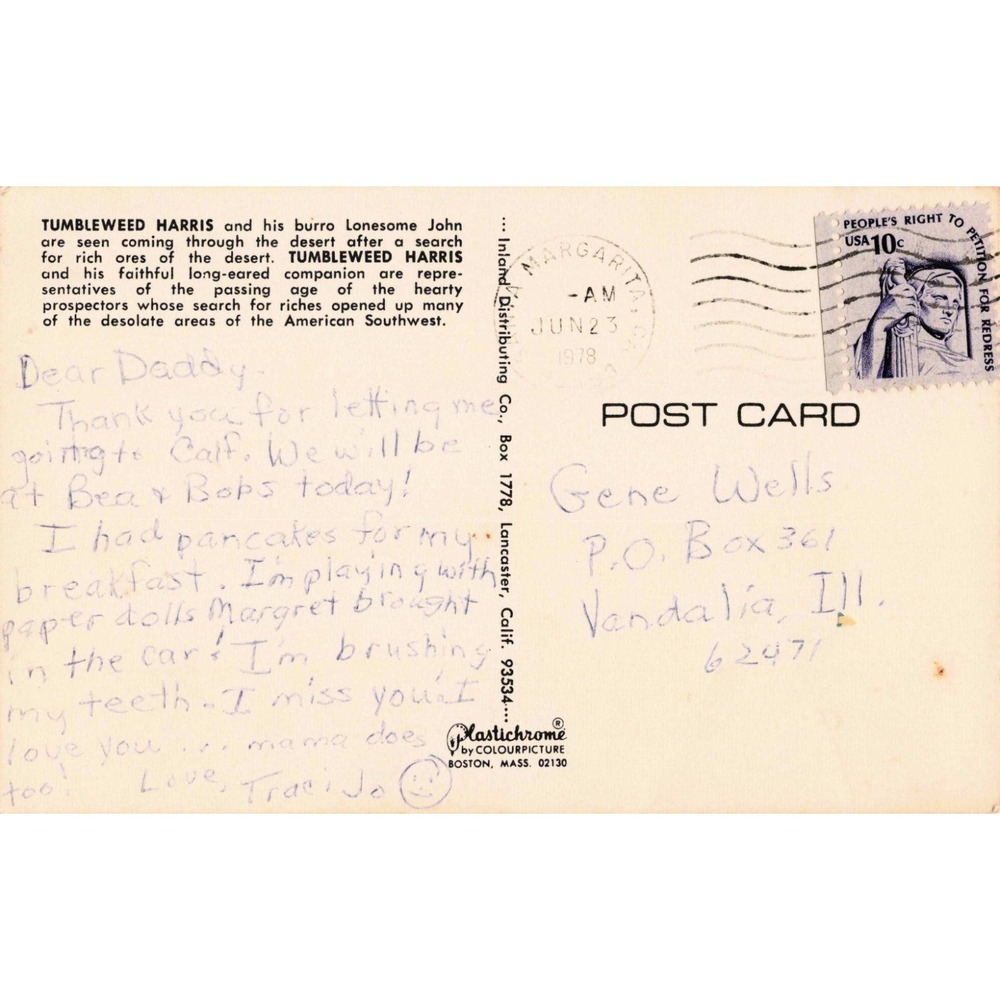 TUMBLEWEED HARRIS and his burro Lonesome John
are seen coming through the desert after a search
for rich ores of the desert. TUMBLEWEED HARRIS
and his faithful long-eared companion are repre-
sentatives of the passing age of the hearty
prospectors whose search for riches opened up many
of the desolate areas of the American Southwest.
Dear Daddy.
Thank you for letting me
going to Calf. We will be
at Bea & Bobs today!
I had pancakes for my
breakfast. I'm playing with
paper dolls Margret brought
in the car! I'm brushing
my teeth. I miss you! I
love you ... mama does
too! Love, Traci Jo
... Inland Distributing Co., Box 1778, Lancaster, Calif. 93534...
Plastichrome ®
by COLOURPICTURE
BOSTON, MASS. 02130
MARGARITA, CA
-AM
JUN 23
1978
PEOPLE'S RIGHT TO PETITION FOR REDRESS
USA 10c
POST CARD
Gene Wells
P.O. Box 361
Vandalia, Ill.
62471